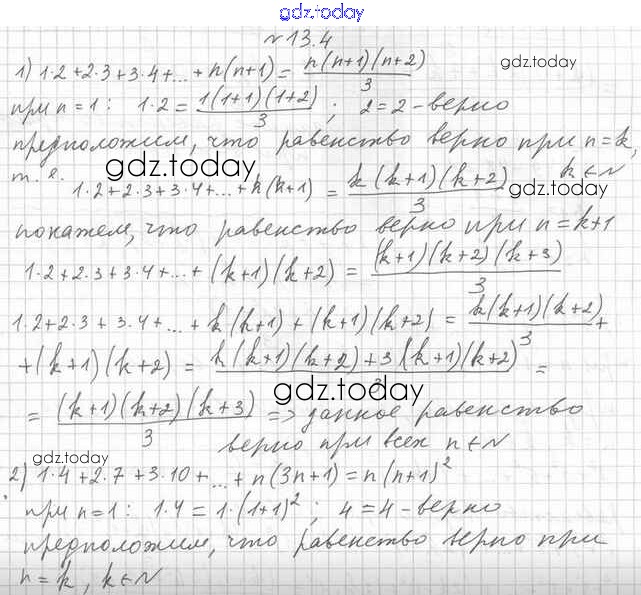 gdz.today
№13.4
1) 1·2+2·3+3·4+...+n(n+1)= n(n+1)(n+2)/3 gdz.today
при n=1: 1·2= 1(1+1)(1+2)/3 ; 2=2-верно
предположим, что равенство верно при n=k,
т.е. gdz.today k∈N
1·2+2·3+3·4+...+k(k+1) = k(k+1)(k+2)/3 gdz.today
покажем, что равенство верно при n=k+1
1·2+2·3+3·4+...+(k+1)(k+2) = (k+1)(k+2)(k+3)/3
1·2+2·3+3·4+...+k(k+1)+(k+1)(k+2) = k(k+1)(k+2)/3 +
+(k+1)(k+2) = k(k+1)(k+2)+3(k+1)(k+2)/3 =
gdz.today
= (k+1)(k+2)(k+3)/3 => данное равенство
верно при всех n∈N
gdz.today
2) 1·4+2·7+3·10+...+n(3n+1)=n(n+1)²
при n=1: 1·4=1·(1+1)²; 4=4-верно
предположим, что равенство верно при
n=k, k∈N